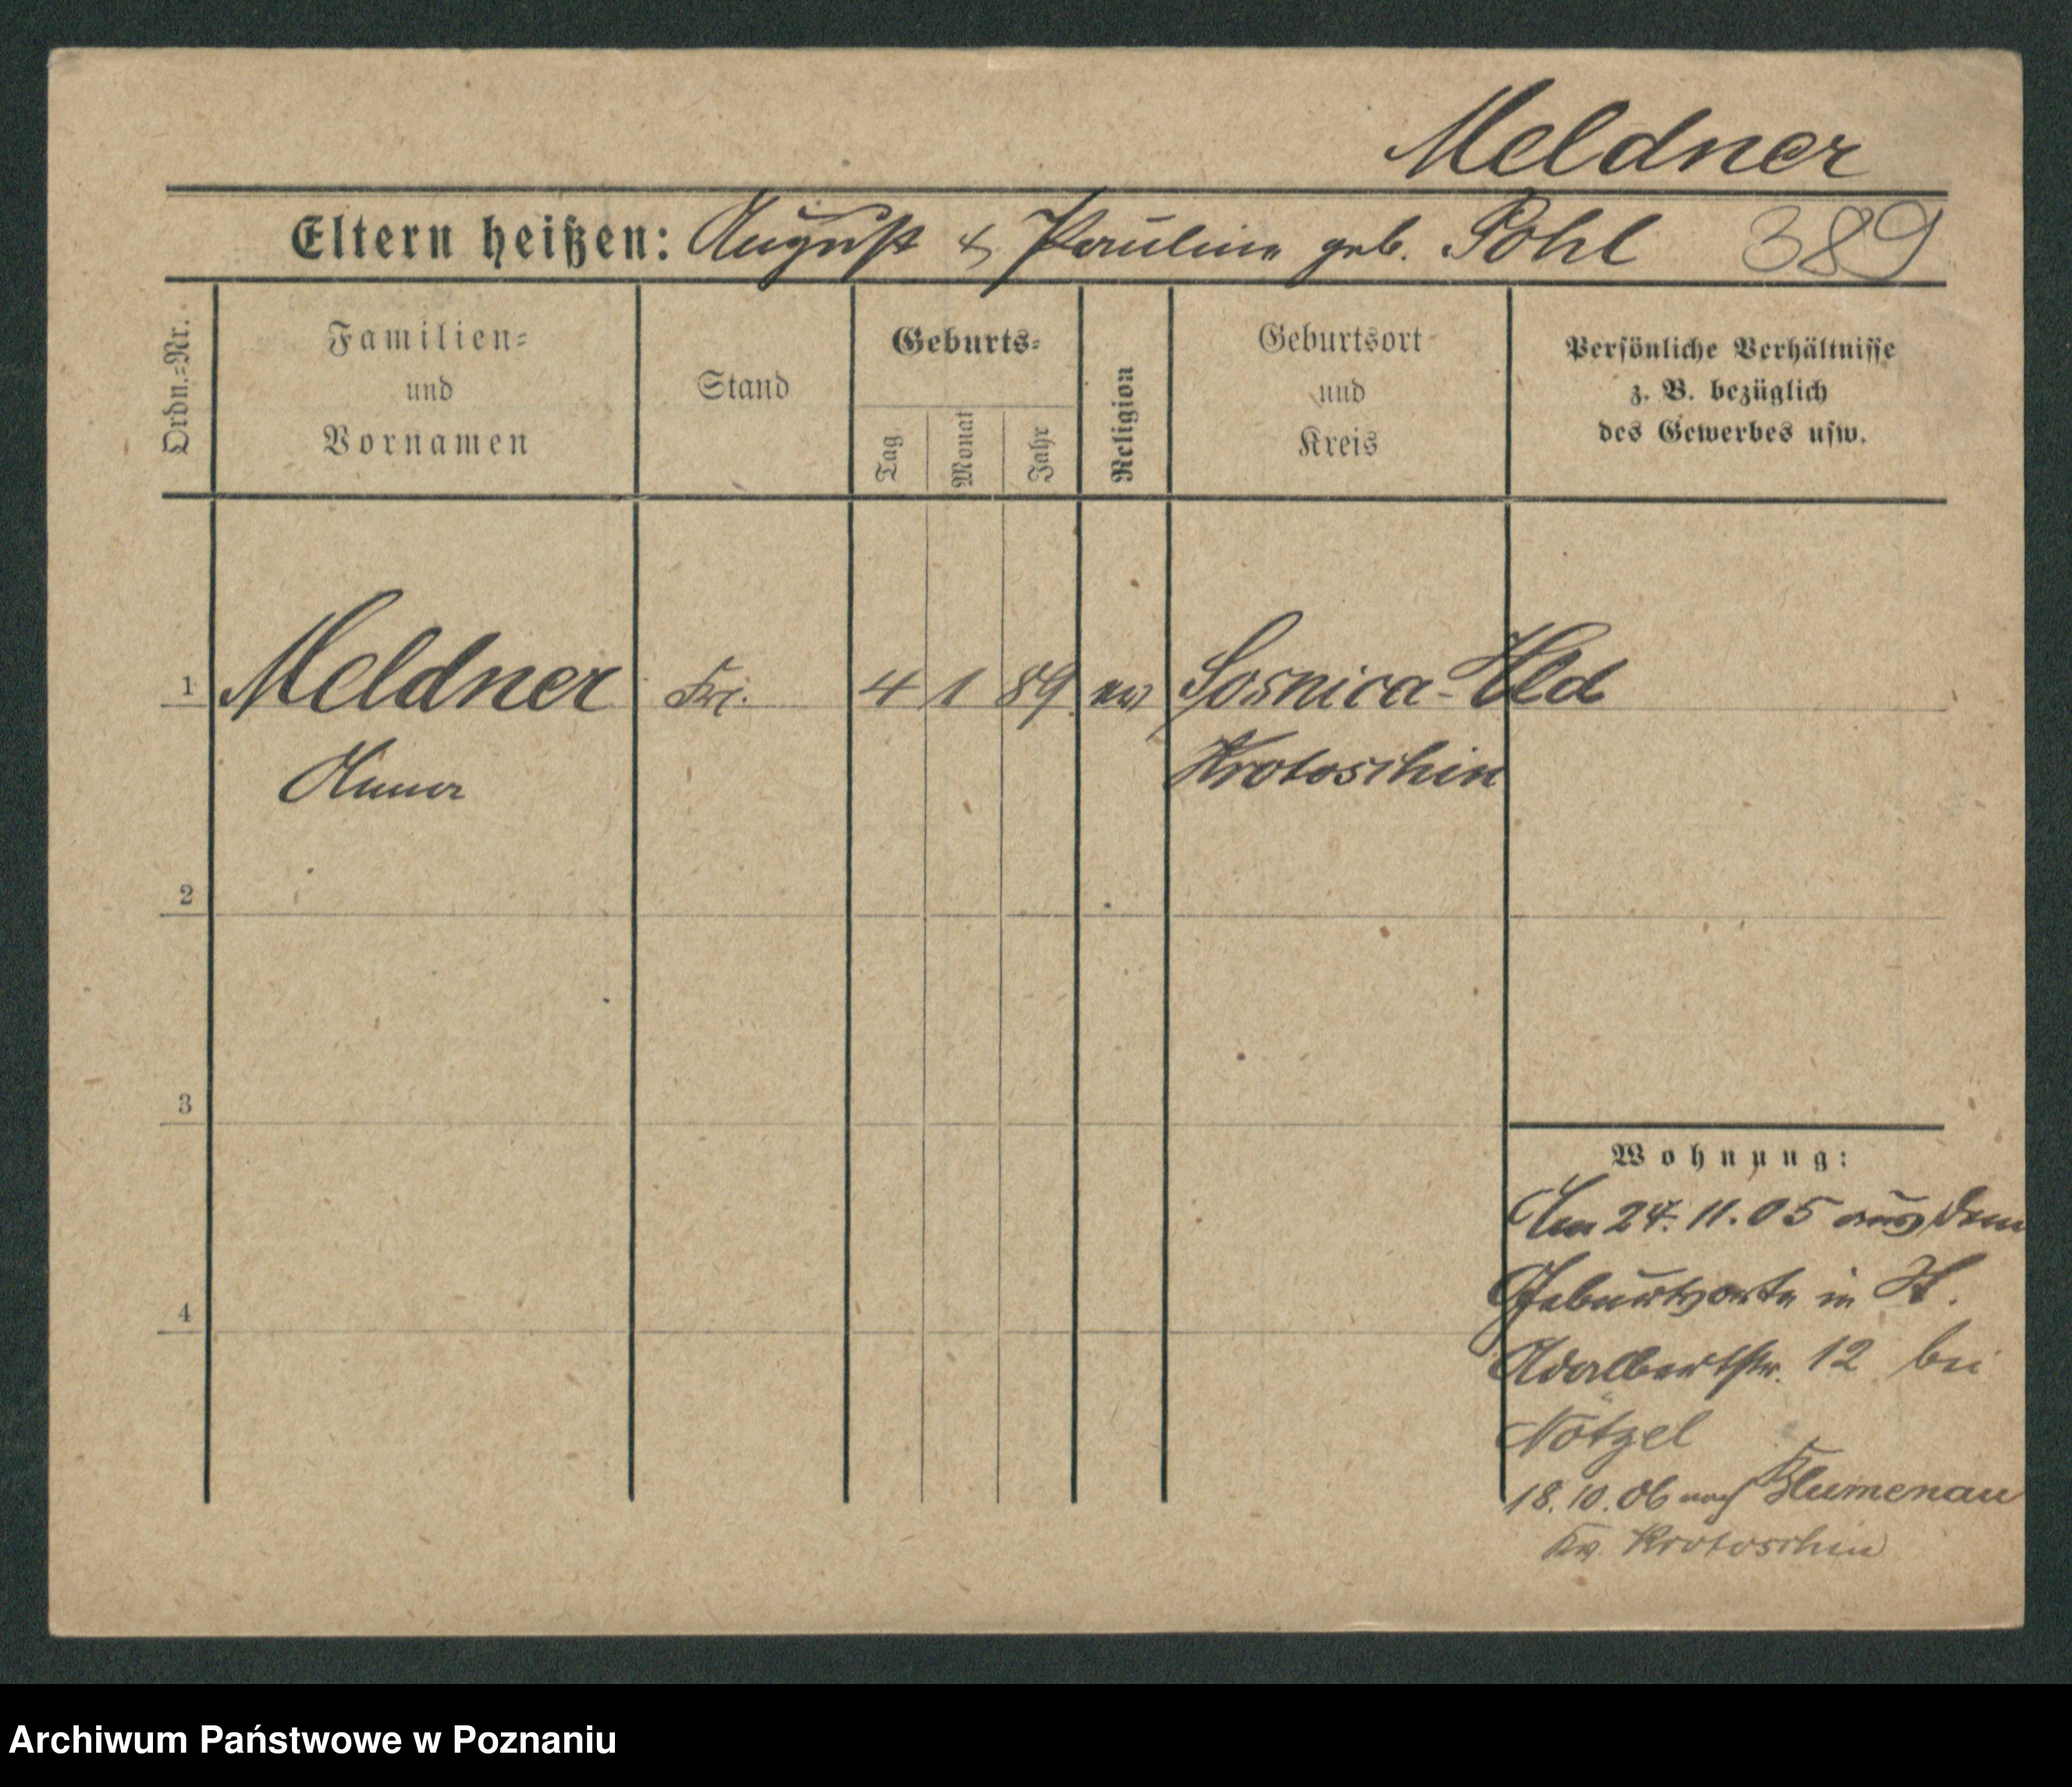 Meldner
Eltern heißen: August & Pauline geb. Pohl 389
Ordn.=Nr.
Familien=
und
Vornamen
Stand
Geburts=
Tag
Monat
Jahr
Religion
Geburtsort
und
Kreis
Persönliche Verhältnisse
z. B. bezüglich
des Gewerbes usw.
1 Meldner 4 1 89 ev Sosnica-Hld
Anna Krotoschin
2
3
4
Wohnung:
Am 24. 11. 05 aus dem
Geburtsorte in St.
Adalbertstr. 12 bei
Nötzel
18. 10. 06 nach Blumenau
Kr. Krotoschin
Archiwum Państwowe w Poznaniu